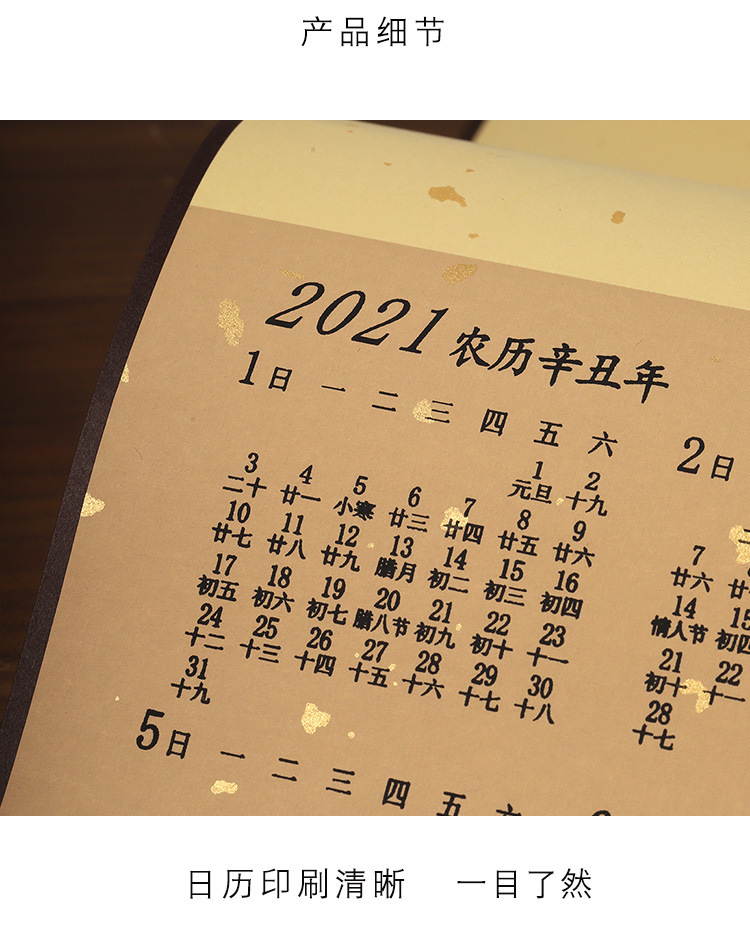 产品细节
2021 农历辛丑年
1 日 一 二 三 四 五 六
1 2
元旦 十九
3 4 5 6 7 8 9
二十 廿一 小寒 廿三 廿四 廿五 廿六
10 11 12 13 14 15 16
廿七 廿八 廿九 腊月 初二 初三 初四
17 18 19 20 21 22 23
初五 初六 初七 腊八节 初九 初十 十一
24 25 26 27 28 29 30
十二 十三 十四 十五 十六 十七 十八
31
十九
2 日
7
廿六
14 15
情人节 初四
21 22
初十 十一
28
十七
5 日 一 二 三 四 五 六
日历印刷清晰 一目了然